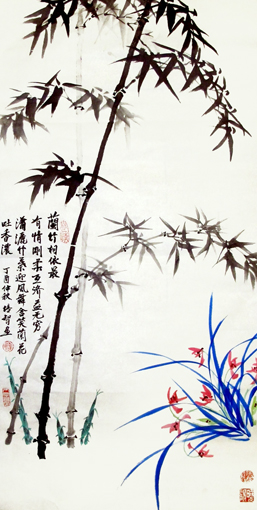 蘭竹相依最
有情剛柔互濟益无窮
瀟灑竹葉迎風舞含笑蘭花
吐香濃
丁酉仲秋培智画